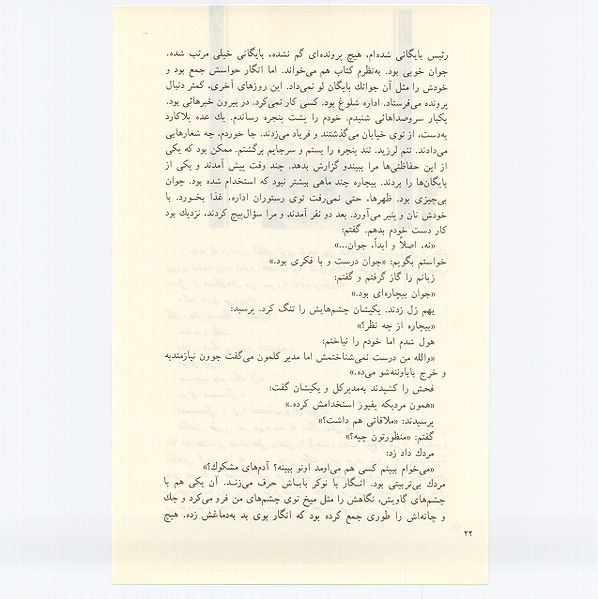 رئیس بایگانی شده‌ام، هیچ پرونده‌ای گم نشده، بایگانی خیلی مرتب شده.
جوان خوبی بود. به‌نظرم کتاب هم می‌خواند. اما انگار حواسش جمع بود و
خودش را مثل آن جوانك بایگان لو نمی‌داد. این روزهای آخری، کمتر دنبال
پرونده می‌فرستاد. اداره شلوغ بود. کسی کار نمی‌کرد. در بیرون خبرهائی بود.
یکبار سروصداهائی شنیدم. خودم را پشت پنجره رساندم. یك عده پلاکارد
به‌دست، از توی خیابان می‌گذشتند و فریاد می‌زدند. جا خوردم، چه شعارهایی
می‌دادند. تنم لرزید. تند پنجره را بستم و سرجایم برگشتم. ممکن بود که یکی
از این حفاظتی‌ها مرا ببیندو گزارش بدهد. چند وقت پیش آمدند و یکی از
بایگان‌ها را بردند. بیچاره چند ماهی بیشتر نبود که استخدام شده بود. جوان
بی‌چیزی بود. ظهرها، حتی نمی‌رفت توی رستوران اداره، غذا بخورد. با
خودش نان و پنیر می‌آورد. بعد دو نفر آمدند و مرا سؤال‌پیچ کردند. نزدیك بود
کار دست خودم بدهم. گفتم:
«نه، اصلاً و ابداً، جوان...»
خواستم بگویم: «جوان درست و با فکری بود.»
زبانم را گاز گرفتم و گفتم:
«جوان بیچاره‌ای بود.»
بهم زل زدند. یکیشان چشم‌هایش را تنگ کرد. پرسید:
«بیچاره از چه نظر؟»
هول شدم اما خودم را نباختم:
«والله من درست نمی‌شناختمش اما مدیر کلمون می‌گفت جوون نیازمندیه
و خرج باباوننه‌شو می‌ده.»
فحش را کشیدند به‌مدیرکل و یکیشان گفت:
«همون مردیکه یفیوز استخدامش کرده.»
پرسیدند: «ملاقاتی هم داشت؟»
گفتم: «منظورتون چیه؟»
مردك داد زد:
«می‌خوام ببینم کسی هم می‌اومد اونو ببینه؟ آدم‌های مشکوك؟»
مردك بی‌تربیتی بود. انگار با نوکر باباش حرف می‌زند. آن یکی هم با
چشم‌های گاویش، نگاهش را مثل میخ توی چشم‌های من فرو می‌کرد و چك
و چانه‌اش را طوری جمع کرده بود که انگار بوی بد به‌دماغش زده. هیچ
۲۲